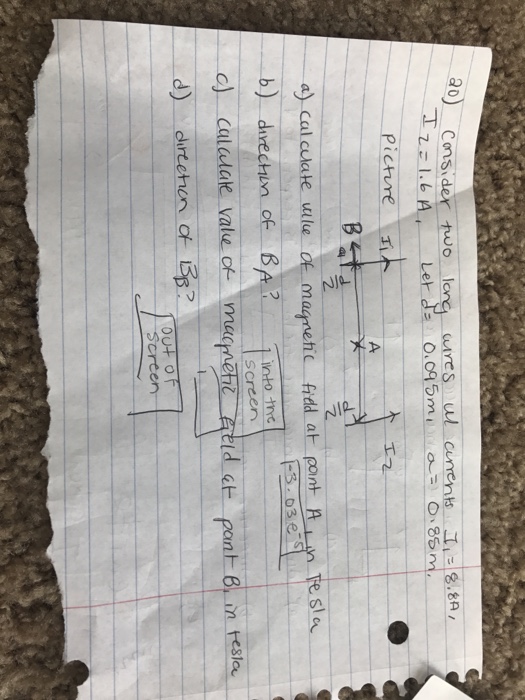 20) Consider two long wires w/ currents I₁ = 8.8A,
I₂ = 1.6A, Let d = 0.095m, a = 0.85m.
picture I₁ I₂
A
B a d/2 d/2
a) calculate value of magnetic field at point A, in Tesla
-3.03e⁻⁵
b) direction of BA? into the
screen
c) calculate value of magnetic field at point B, in tesla
d) direction of BB? out of
screen